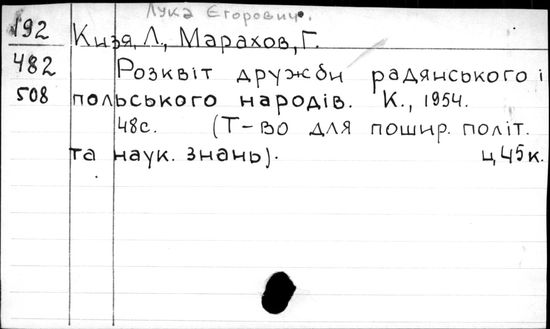 Лука Єгорович.
192
Кизя, Л., Марахов, Г.
482
Розквіт дружби радянського і
508
польського народів. К., 1954.
48с. (Т-во для пошир. політ.
та наук. знань).
ц 45к.